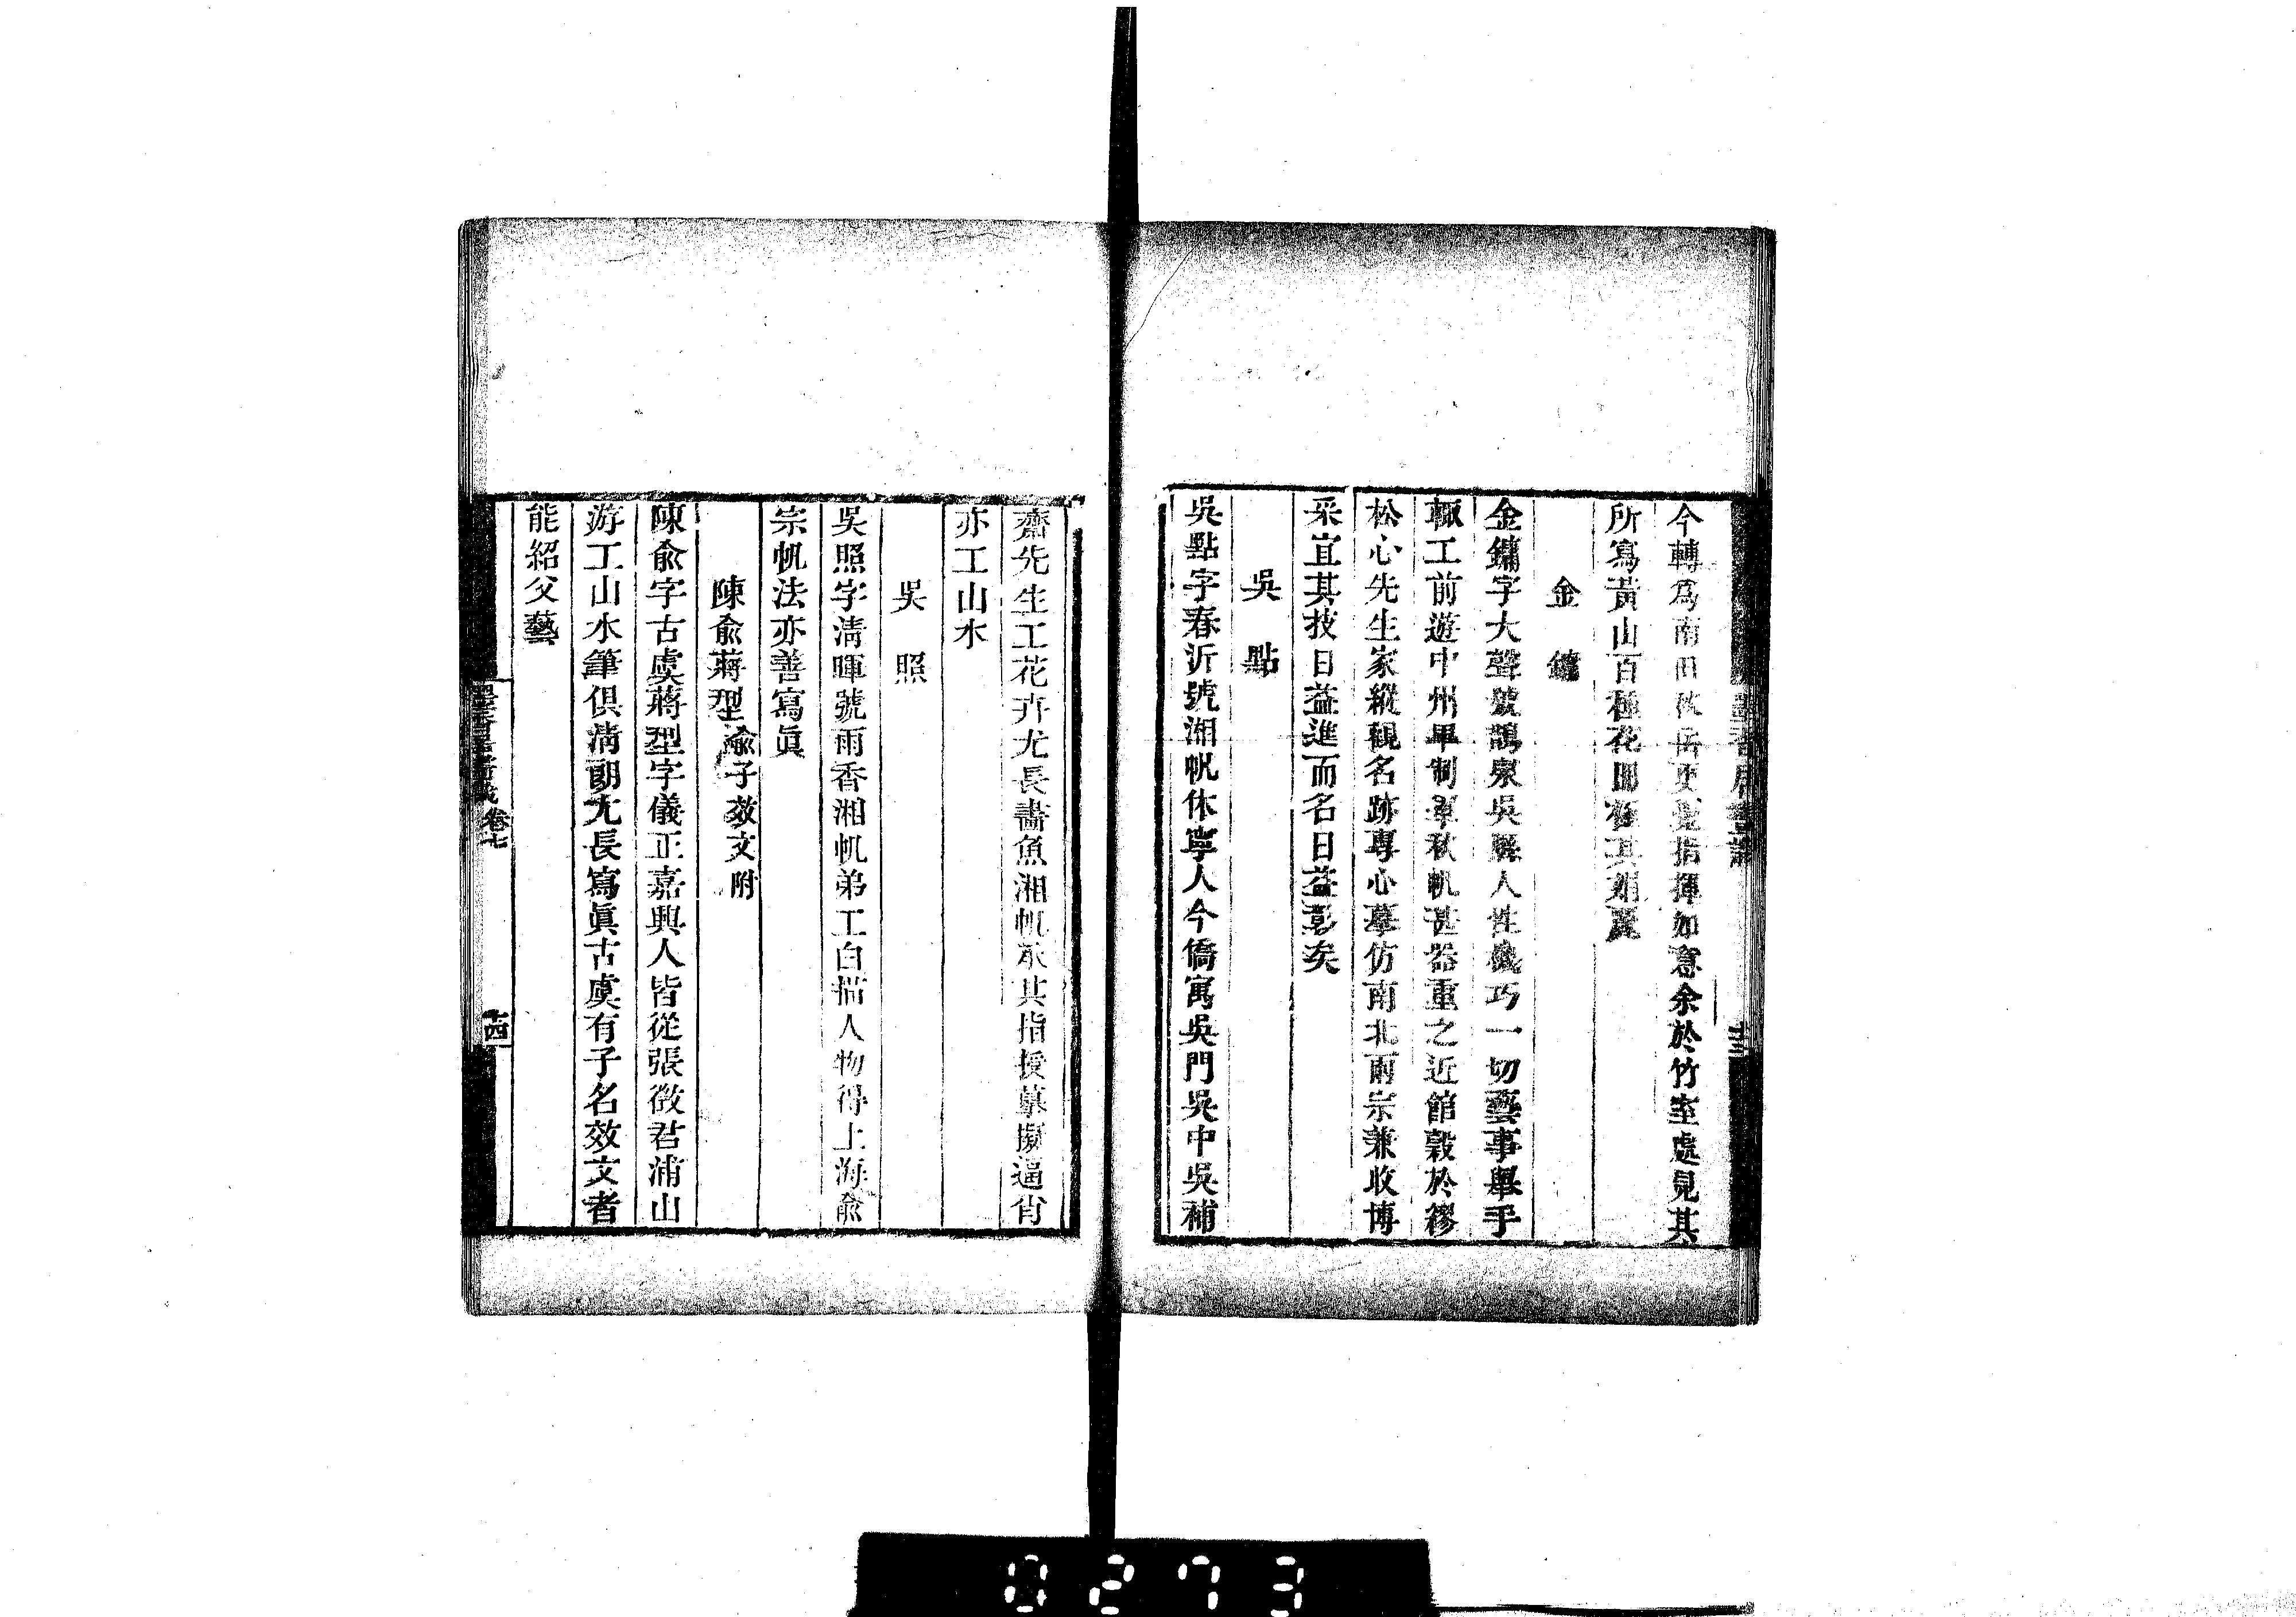 今轉爲南田秋岳更覺指揮如意余於竹室處見其
所寫黃山百種花冊極其娟麗
金鏞
金鏞字大聲號鵲泉吳縣人性機巧一切藝事舉手
輒工前遊中州畢制軍秋帆甚器重之近館穀於繆
松心先生家縱觀名跡專心摹仿南北兩宗兼收博
采宜其技日益進而名日益彰矣
吳點
吳點字春沂號湘帆休寧人今僑寓吳門吳中吳補
齋先生工花卉尤長畵魚湘帆承其指授摹擬逼肖
亦工山水
吳照
吳照字淸暉號雨香湘帆弟工白描人物得上海俞
宗帆法亦善寫眞
陳俞蔣型 俞子效文附
陳俞字古虞蔣型字儀正嘉興人皆從張徵君浦山
游工山水筆俱淸朗尤長寫眞古虞有子名效文者
能紹父藝
墨香居畫識 卷七 十四
0273